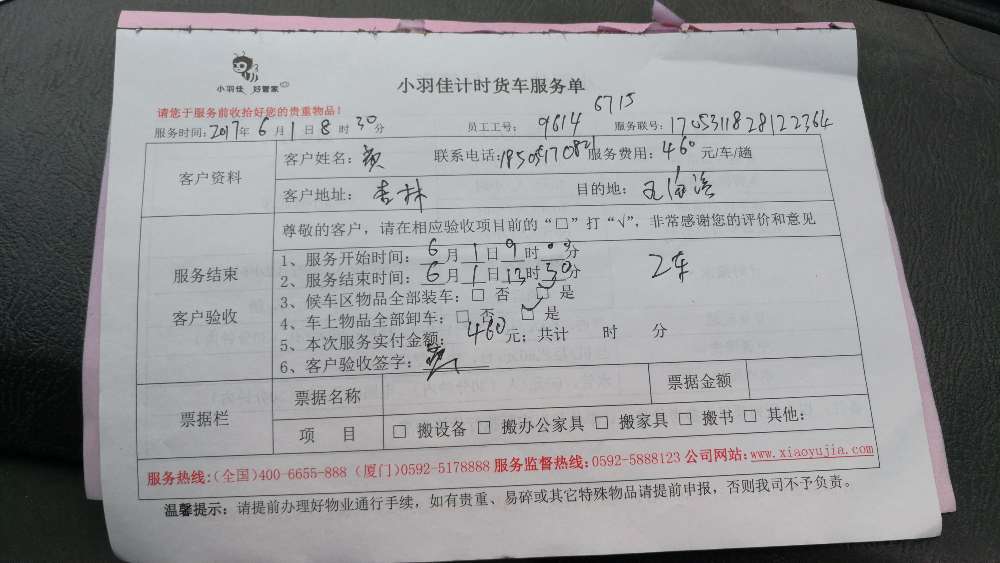 小羽佳 好管家
小羽佳计时货车服务单
请您于服务前收拾好您的贵重物品！
6715
服务时间：2017年6月1日8时30分 员工工号：9614 服务联号：1705311828122364
客户资料
客户姓名： 联系电话： 服务费用：460元/车/趟
客户地址：杏林 目的地：
服务结束
客户验收
尊敬的客户，请在相应验收项目前的“□”打“√”，非常感谢您的评价和意见
1、服务开始时间：6月1日9时00分
2车
2、服务结束时间：6月1日13时30分
3、候车区物品全部装车：□ 否 □ 是
4、车上物品全部卸车：□ 否 □ 是
5、本次服务实付金额：460元；共计 时 分
6、客户验收签字：
票据栏
票据名称 票据金额
项 目 □ 搬设备 □ 搬办公家具 □ 搬家具 □ 搬书 □ 其他：
服务热线：（全国）400-6655-888（厦门）0592-5178888 服务监督热线：0592-5888123 公司网站：www.xiaoyujia.com
温馨提示：请提前办理好物业通行手续，如有贵重、易碎或其它特殊物品请提前申报，否则我司不予负责。